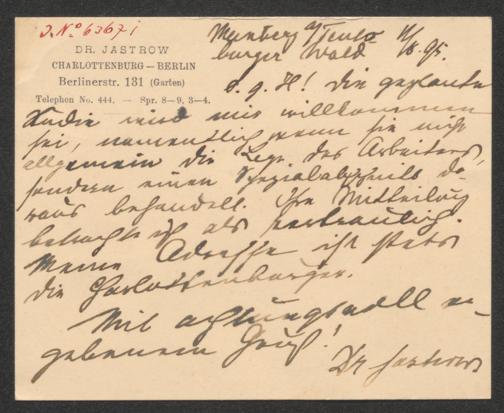 J. No 63671
DR. JASTROW
CHARLOTTENBURG—BERLIN
Berlinerstr. 131 (Garten)
Telephon No. 444. — Spr. 8—9, 3—4.
a/Teuto
burger Wald 11/8. 95.
S. g. H! Die geplante
Studie wird mir willkommen
sei, namentlich wenn sie nicht
allgemein die des Arbeiters,
sondern einen Spezialabschnitt da-
raus behandelt. Ihre Mitteilung
betrachte ich als vertraulich.
Meine Adresse ist stets
die Charlottenburger.
Mit achtungsvoll er-
gebenem Gruß!
Dr Jastrow